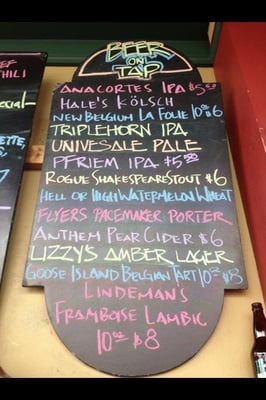 EF
THILI
ecial
ETTE,
BEER
ON
TAP
ANACORTES IPA $5.50
HALE'S KÖLSCH
NEW BELGIUM LA FOLIE 10oz $6
TRIPLEHORN IPA
UNIVESALE PALE
PFRIEM IPA $5.50
ROGUE SHAKESPEARE STOUT $6
HELL OR HIGH WATERMELON WHEAT
FLYERS PACEMAKER PORTER
ANTHEM PEAR CIDER $6
LIZZY'S AMBER LAGER
GOOSE ISLAND BELGIAN TART 10oz $8
LINDEMAN'S
FRAMBOISE LAMBIC
10oz $8